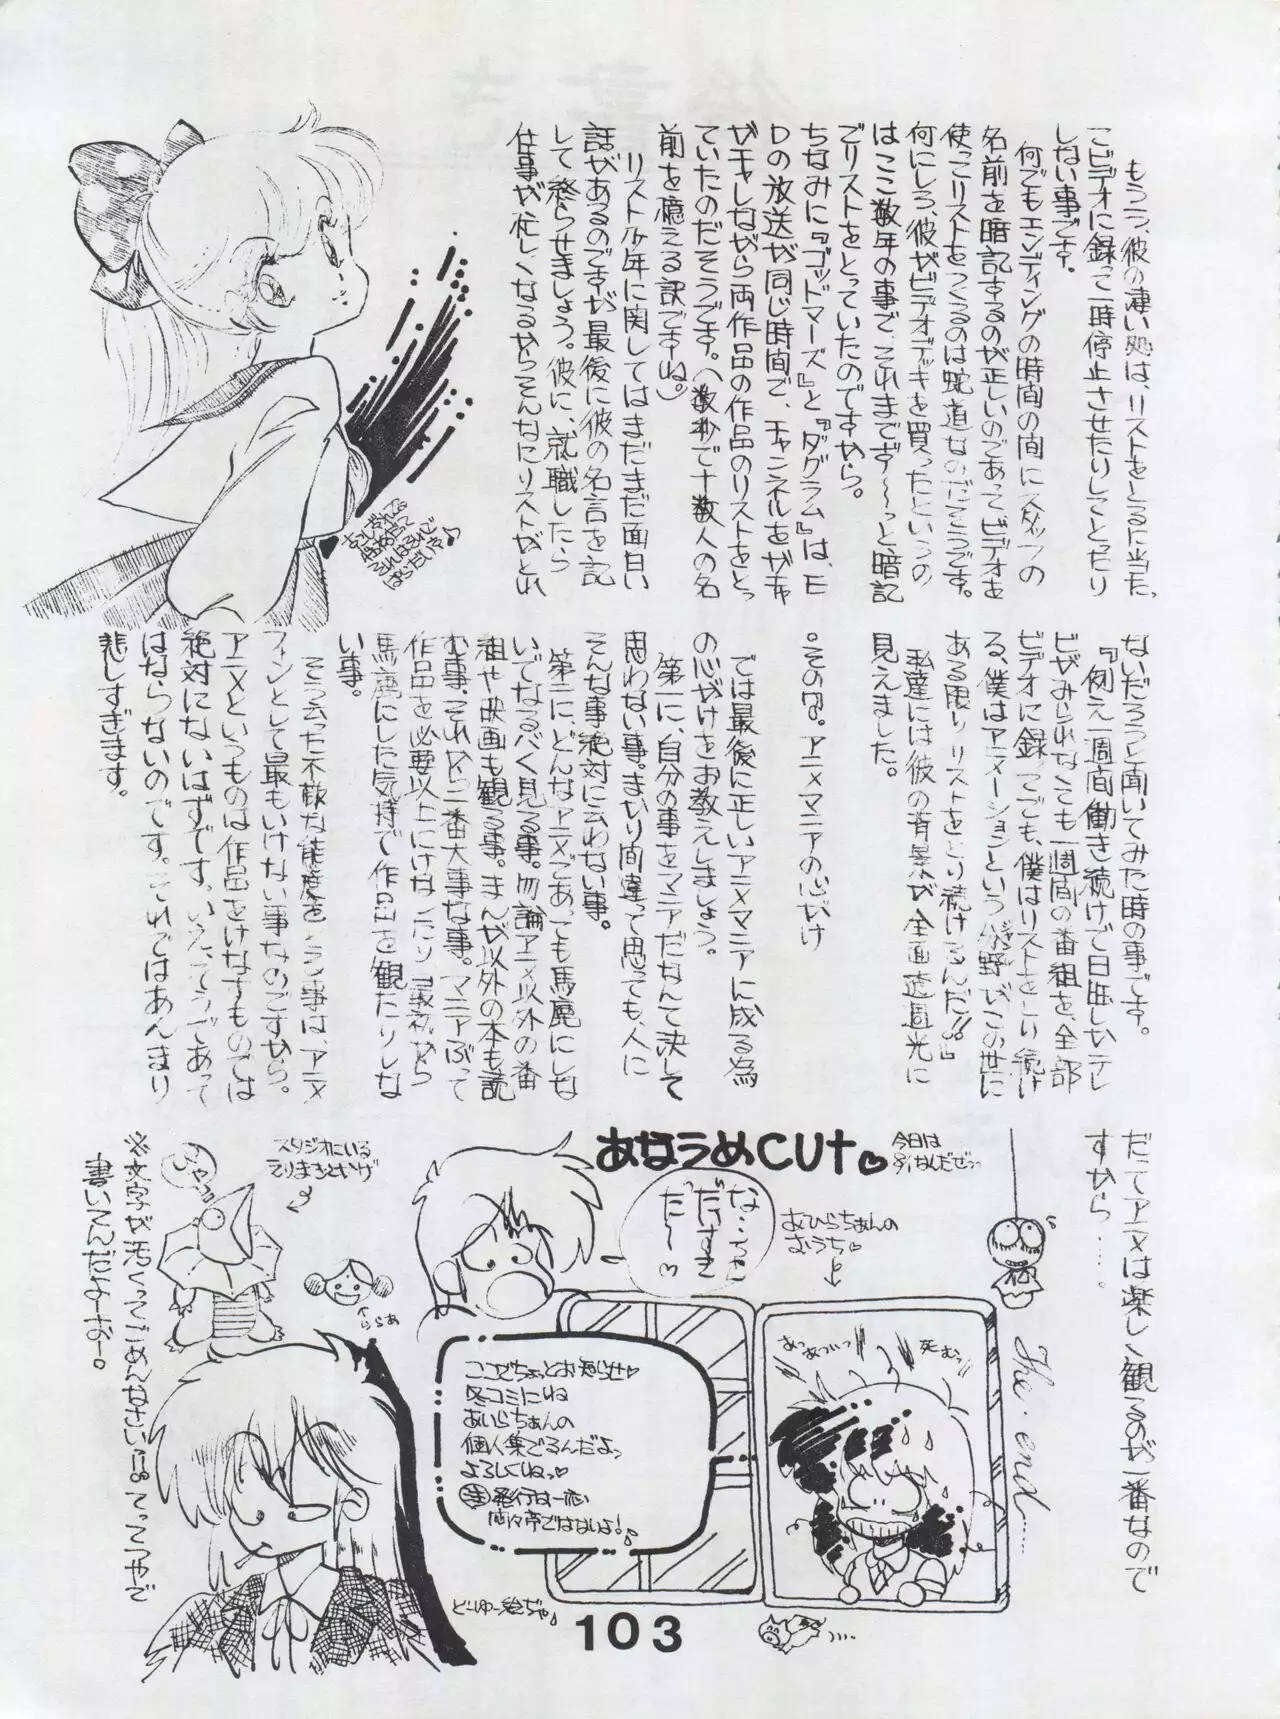 もう一つ、彼の凄い処は、リストをとるに当たっ
てビデオに録って一時停止させたりしてとったり
しない事です。
何でもエンディングの時間の間にスタッフの
名前を暗記するのが正しいのであってビデオを
使ってリストをつくるのは蛇道なのだそうです。
何にしろ、彼がビデオデッキを買ったというの
はここ数年の事で、それまでず〜〜っと、暗記
でリストをとっていたのですから。
ちなみに『ゴッドマーズ』と『ダグラム』は、E
Dの放送が同じ時間で、チャンネルをガチャ
ガチャしながら両作品の作品のリストをとっ
ていたのだそうです。(数秒で十数人の名
前を憶える訳ですね。)
リスト少年に関してはまだまだ面白い
話があるのですが最後に彼の名言を記
して終らせましょう。彼に、就職したら
仕事が忙しくなるからそんなにリストがとれ
ないだろうと聞いてみた時の事です。
『例え一週間働き続けで日曜しかテレ
ビがみられなくても一週間の番組を、全部
ビデオに録ってでも、僕はリストをとり続け
る、僕はアニメーションという分野がこの世に
ある限りリストをとり続けるんだ!!』
私達には彼の背景が全画透過光に
見えました。
。その⑧。アニメマニアの心がけ
では最後に正しいアニメマニアに成る為
の心がけをお教えしましょう。
第一に、自分の事をマニアだなんて決して
思わない事。まかり間違って思っても、人に
そんな事絶対に云わない事。
第二に、どんなアニメであっても馬鹿にしな
いでなるべく見る事。勿論アニメ以外の番
組や映画も観る事。まんが以外の本も読
む事、それから一番大事な事。マニアぶって
作品を必要以上にけなしたり最初から
馬鹿にした気持で作品を観たりしな
い事。
そう云った不敵な態度をとる事は、アニメ
ファンとして最もいけない事なのですから。
アニメというものは作品をけなすものでは
絶対にないはずです。いえ、そうであって
はならないのです。それではあんまり
悲しすぎます。
だってアニメは楽しく観るのが一番なので
すから……。
The・end……
あなうめCUt♡
今日は
なんだぜっ
な…ちゃん
だいすき
だ〜♡
おひらちぁんの
おうち♡
あつあついっ
死むっ
ここでちょっとお知らせ♡
冬コミにね
あいらちぁんの
個人集でるんだよっ
よろしくねっ♡
㊟発行は一応
悶々亭ではないよ!
どーゆー絵ぢゃ
スタジオにいる
てりまきとかげ
ららぁ
※文字が汚くってごめんなさい
書いてんだよーおー。
103